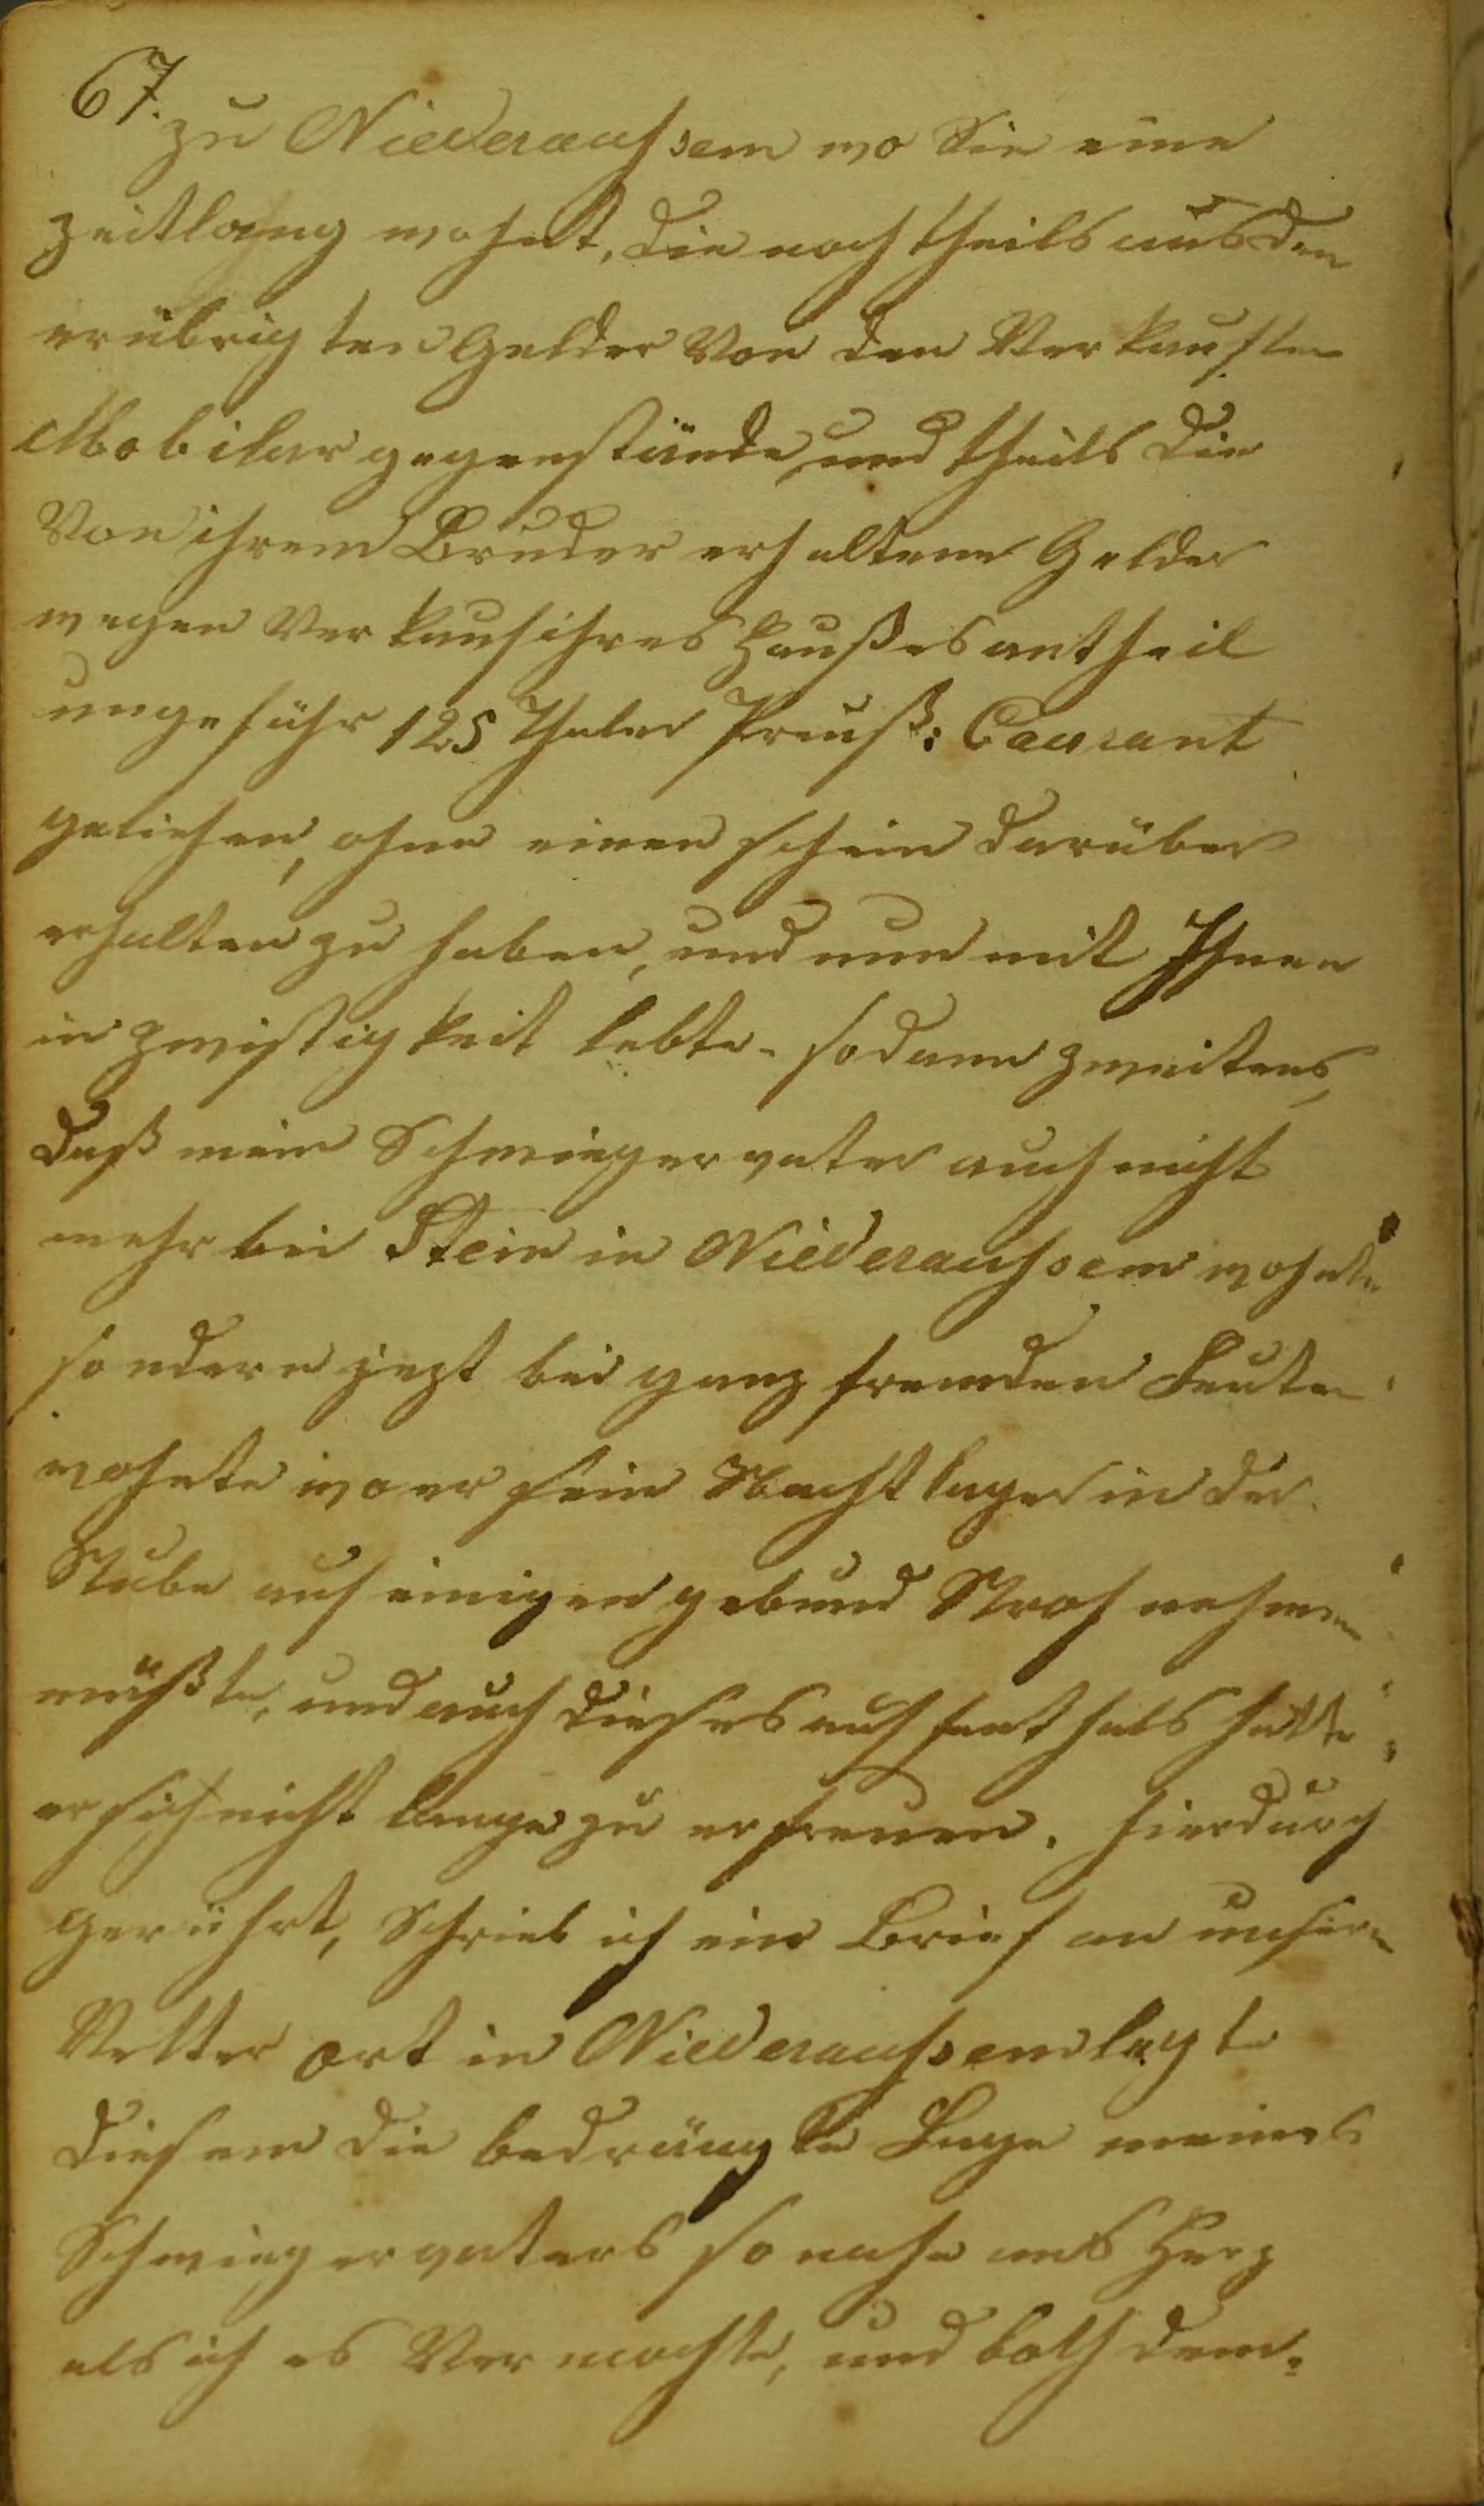 67.
zu Niederaussem wo Sie eine
zeitlang wohnt, die noch theils aus den
erübrigten Gelder Von den Verkauften
Mobilar gegenstände, und theils die
Von ihrem Bruder erhaltene Gelder
wegen Verkauf ihres Haußes antheil
ungefähr 125 Thaler Preuß: Caurant
geliehen, ohne einen schein darüber
erhalten zu haben, und nun mit Ihnen
in zwistigkeit lebte. sodann zweitens,
daß mein Schwiegervater auch nicht
mehr bei Stein in Niederaussem wohnte
sondern jezt bei ganz fremden Leuten
wohnte wo er sein Nachtlager in der
Stube auf einigen gebund Stroh nehmen
müßte, und auch dieses aufenthals hätte
er sich nicht lange zu erfreuen. hierdurch
gerührt, Schrieb ich ein Brief an unsern
Vetter Ort in Niederaussem legte
diesem die bedrängte Lage meines
Schwiegervaters so nahe ans Herz
als ich es Vermochte, und both dem-